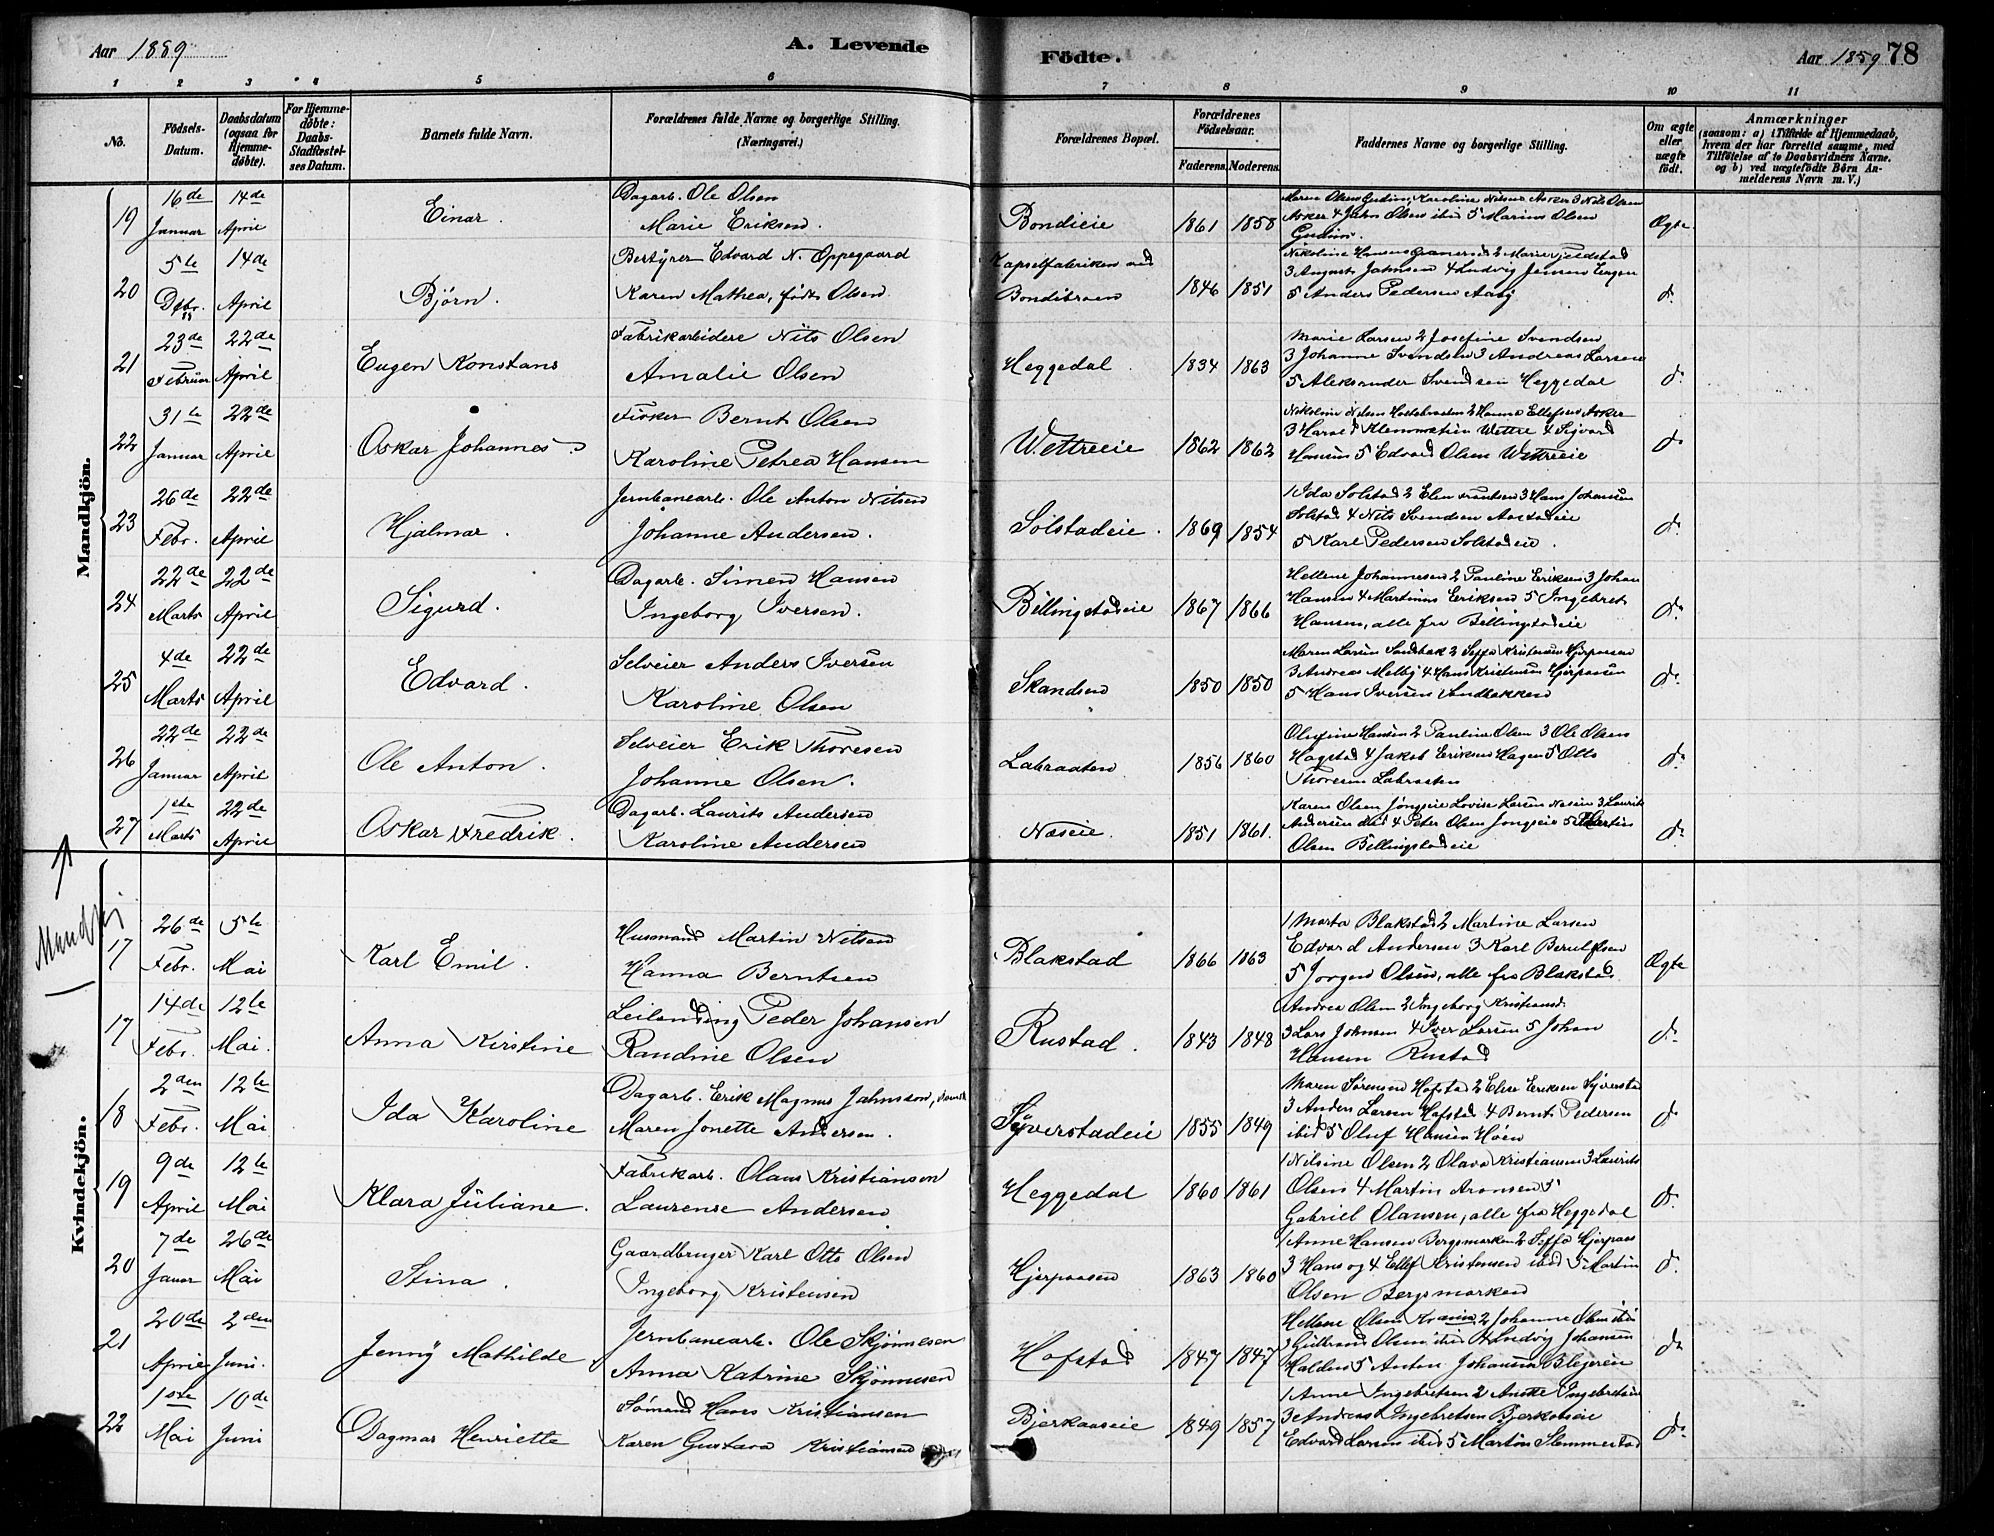 Aar 1889
A. Levende
Födte.
Aar 1889 78
1 2 3 4 5 6 7 8 9 10 11
No.
Födsels-Datum.
Daabsdatum (ogsaa for Hjemme-döbte).
For Hjemme-döbte: Daabs-Stadfæstel-ses Datum.
Barnets fulde Navn.
Forældrenes fulde Navne og borgerlige Stilling. (Næringsvei.)
Forældrenes Bopæl.
Forældrenes Födselsaar.
Faderens. Moderens.
Faddernes Navne og borgerlige Stilling.
Om ægte eller uægte födt.
Anmærkninger
(saasom: a) i Tilfælde af Hjemmedaab, hvem der har forrettet samme, med Tilföielse af to Daabsvidners Navne. og b) ved uægtefödte Börn An-melderens Navn m. V.)
Mandkjön.
19 16de Januar 14de April Einar.
Dagarb. Ole Olsen
Marie Eriksen.
Bondieie 1861 1858
Asker 4 John Olsen ibid 5 Marius Olsen
Ægte
20 5te Debr. 14de April Björn.
Bestyrer Edvard N. Oppegaard
Karen Mathea, födt Olsen
Kapselfabriken ved
Bondibroen 1846 1851
3 August Jahnsen 4 Ludvig Jensen
5 Anders Pedersen Aaby
do
21 23de Februar 22de April Eugen Konstans
Fabrikarbeidere Nils Olsen
Amalie Olsen
Heggedal 1834 1863
Marie Larsen 2 Josefine Svendsen
3 Johanne Svendsen 3 Andreas Larsen
5 Aleksander Svendsen Heggedal
do
22 31te Januar 22de April Oskar Johannes
Fisker Bernt Olsen
Karoline Petrea Hansen
Wettreeie 1862 1862
Hansen 5 Edvard Olsen Wettreeie
do
23 26de Febr. 22de April Hjalmar.
Jernbanearb. Ole Anton Nilsen
Johanne Andersen.
Solstadeie. 1869 1854
1 Ida Solstad 2 Elen Frantsen 3 Hans Johansen
Solstad 4 Nils Svendsen
5 Karl Pedersen Solstadeie.
do
24 22de Marts 22de April Sigurd.
Dagarb. Simen Hansen
Ingeborg Iversen.
Billingstadeie 1867 1866
Hellene Johannesen 2 Pauline Eriksen 3 Johan
Hansen 4 Martinus Eriksen 5 Ingebret
Hansen, alle fra Billingstadeie
do
25 4de Marts 22de April Edvard.
Selveier Anders Iversen
Karoline Olsen
Skandsen 1850 1850
3 Andreas Melby 4 Hans Kristensen Hjerpaasen
5 Hans Iversen Sandbakken
do
26 22de Januar 22de April Ole Anton.
Selveier Erik Thoresen
Johanne Olsen.
Labraaten 1856 1860
Olufine Hansen 2 Pauline Olsen 3 Ole Olsen
Hagstad 4 Jakob Eriksen Hagen 5 Otto
Thoresen Labraaten
do
27 1ste Marts 22de April Oskar Fredrik.
Dagarb. Laurits Andersen
Karoline Andersen
Næseie. 1851 1861.
Karen Olsen Jongseie Lovise Larsen Næseie 3 Laurits
Andersen ibid 4 Peter Olsen Jongseie 5 Martin
Olsen Billingstadeie
do
Mandkj
Kvindekjön.
17 26de Febr. 5te Mai Karl Emil.
Husmand Martin Nilsen
Hanna Berntsen
Blakstad 1866 1863
1 Marta Blakstad 2 Martine Larsen
Edvard Andersen 3 Karl Berntsen
5 Jorgen Olsen, alle fra Blakstad
Ægte
17 14de Febr. 12te Mai. Anna Kirstine
Leilending Peder Johansen
Randine Olsen
Rustad. 1843 1848
Andrea Olsen 2 Ingeborg Kristiansd.
3 Lars Johnsen 4 Iver Larsen 5 Johan
Hansen Rustad
do
18 2den Febr. 12te Mai Ida Karoline
Dagarb. Erik Magnus Jahnsson, svensk
Maren Jonette Andersen.
Syverstadeie 1855 1849
Maren Sørensen Hofstad 2 Elise Eriksen Syverstad
3 Anders Larsen Hofstad 4 Bernt Pedersen
ibid 5 Oluf Hansen Høen
do
19 9de April 12te Mai Klara Juliane.
Fabrikarb. Olaus Kristiansen
Laurense Andersen
Heggedal 1860 1861
1 Nilsine Olsen 2 Olava Kristiansen 3 Laurits
Olsen 4 Martin Aronsen 5
Gabriel Olausen, alle fra Heggedal
do
20 7de Januar 26de Mai Stina.
Gaardbruger Karl Otto Olsen
Ingeborg Kristensen
Hjerpaasen 1863 1860
1 Anne Hansen Bergsmarken 2 Siffa Hjerpaas
3 Hans og 4 Ellef Kristensen ibid 5 Martin
Olsen Bergsmarken
do
21 20de April 2den Juni. Jenny Mathilde
Jernbanearb. Ole Skjønnesen
Anna Katrine Skjønnesen
Hofstad 1847 1847
Hellene Olsen 2 Johanne Olsen ibid
3 Gulbrand Olsen ibid 4 Ludvig Johansen
Halden 5 Anton Johansen Blegeren
do
22 1ste Mai 10de Juni Dagmar Henriette
Sømand Hans Kristiansen
Karen Gustava Kristiansen
Bjerkaaseie 1849 1857
1 Anne Ingebretsen 2 Anette Ingebretsen
3 Andreas Ingebretsen Bjerkaaseie
Edvard Larsen ibid 5 Martin Slemmestad
do